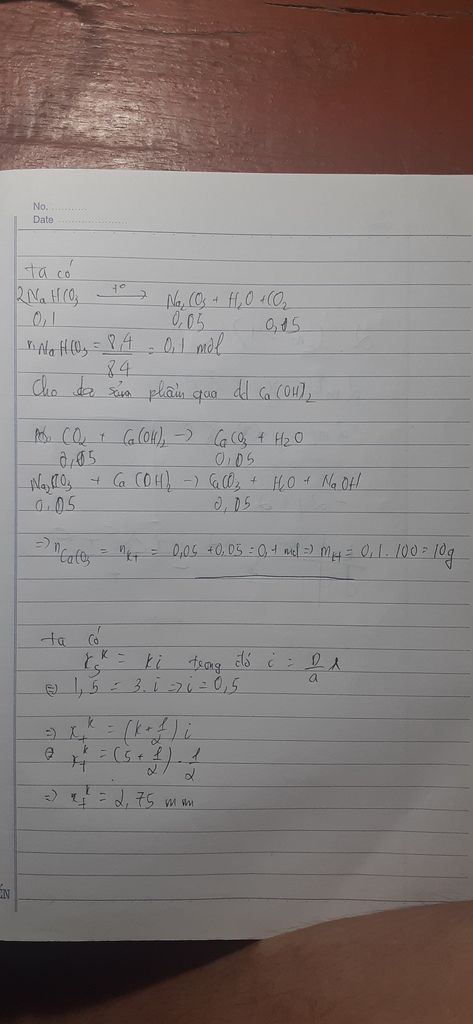 No. ............
Date ......................
ta có
2NaHCO3 —t°→ Na2CO3 + H2O + CO2
0,1 0,05 0,05
nNaHCO3 = 8,4/84 = 0,1 mol
Cho sản phẩm qua dd Ca(OH)2
CO2 + Ca(OH)2 -> CaCO3 + H2O
0,05 0,05
Na2CO3 + Ca(OH)2 -> CaCO3 + H2O + NaOH
0,05 0,05
=> nCaCO3 = nKT = 0,05 + 0,05 = 0,1 mol => mKT = 0,1 . 100 = 10g
ta có
xs^k = ki trong đó i = D/a λ
<=> 1,5 = 3.i => i = 0,5
=> xt^k = (k + 1/2) i
xt^k = (5 + 1/2) . 1/2
=> xt^k = 2,75 mm
ÉN